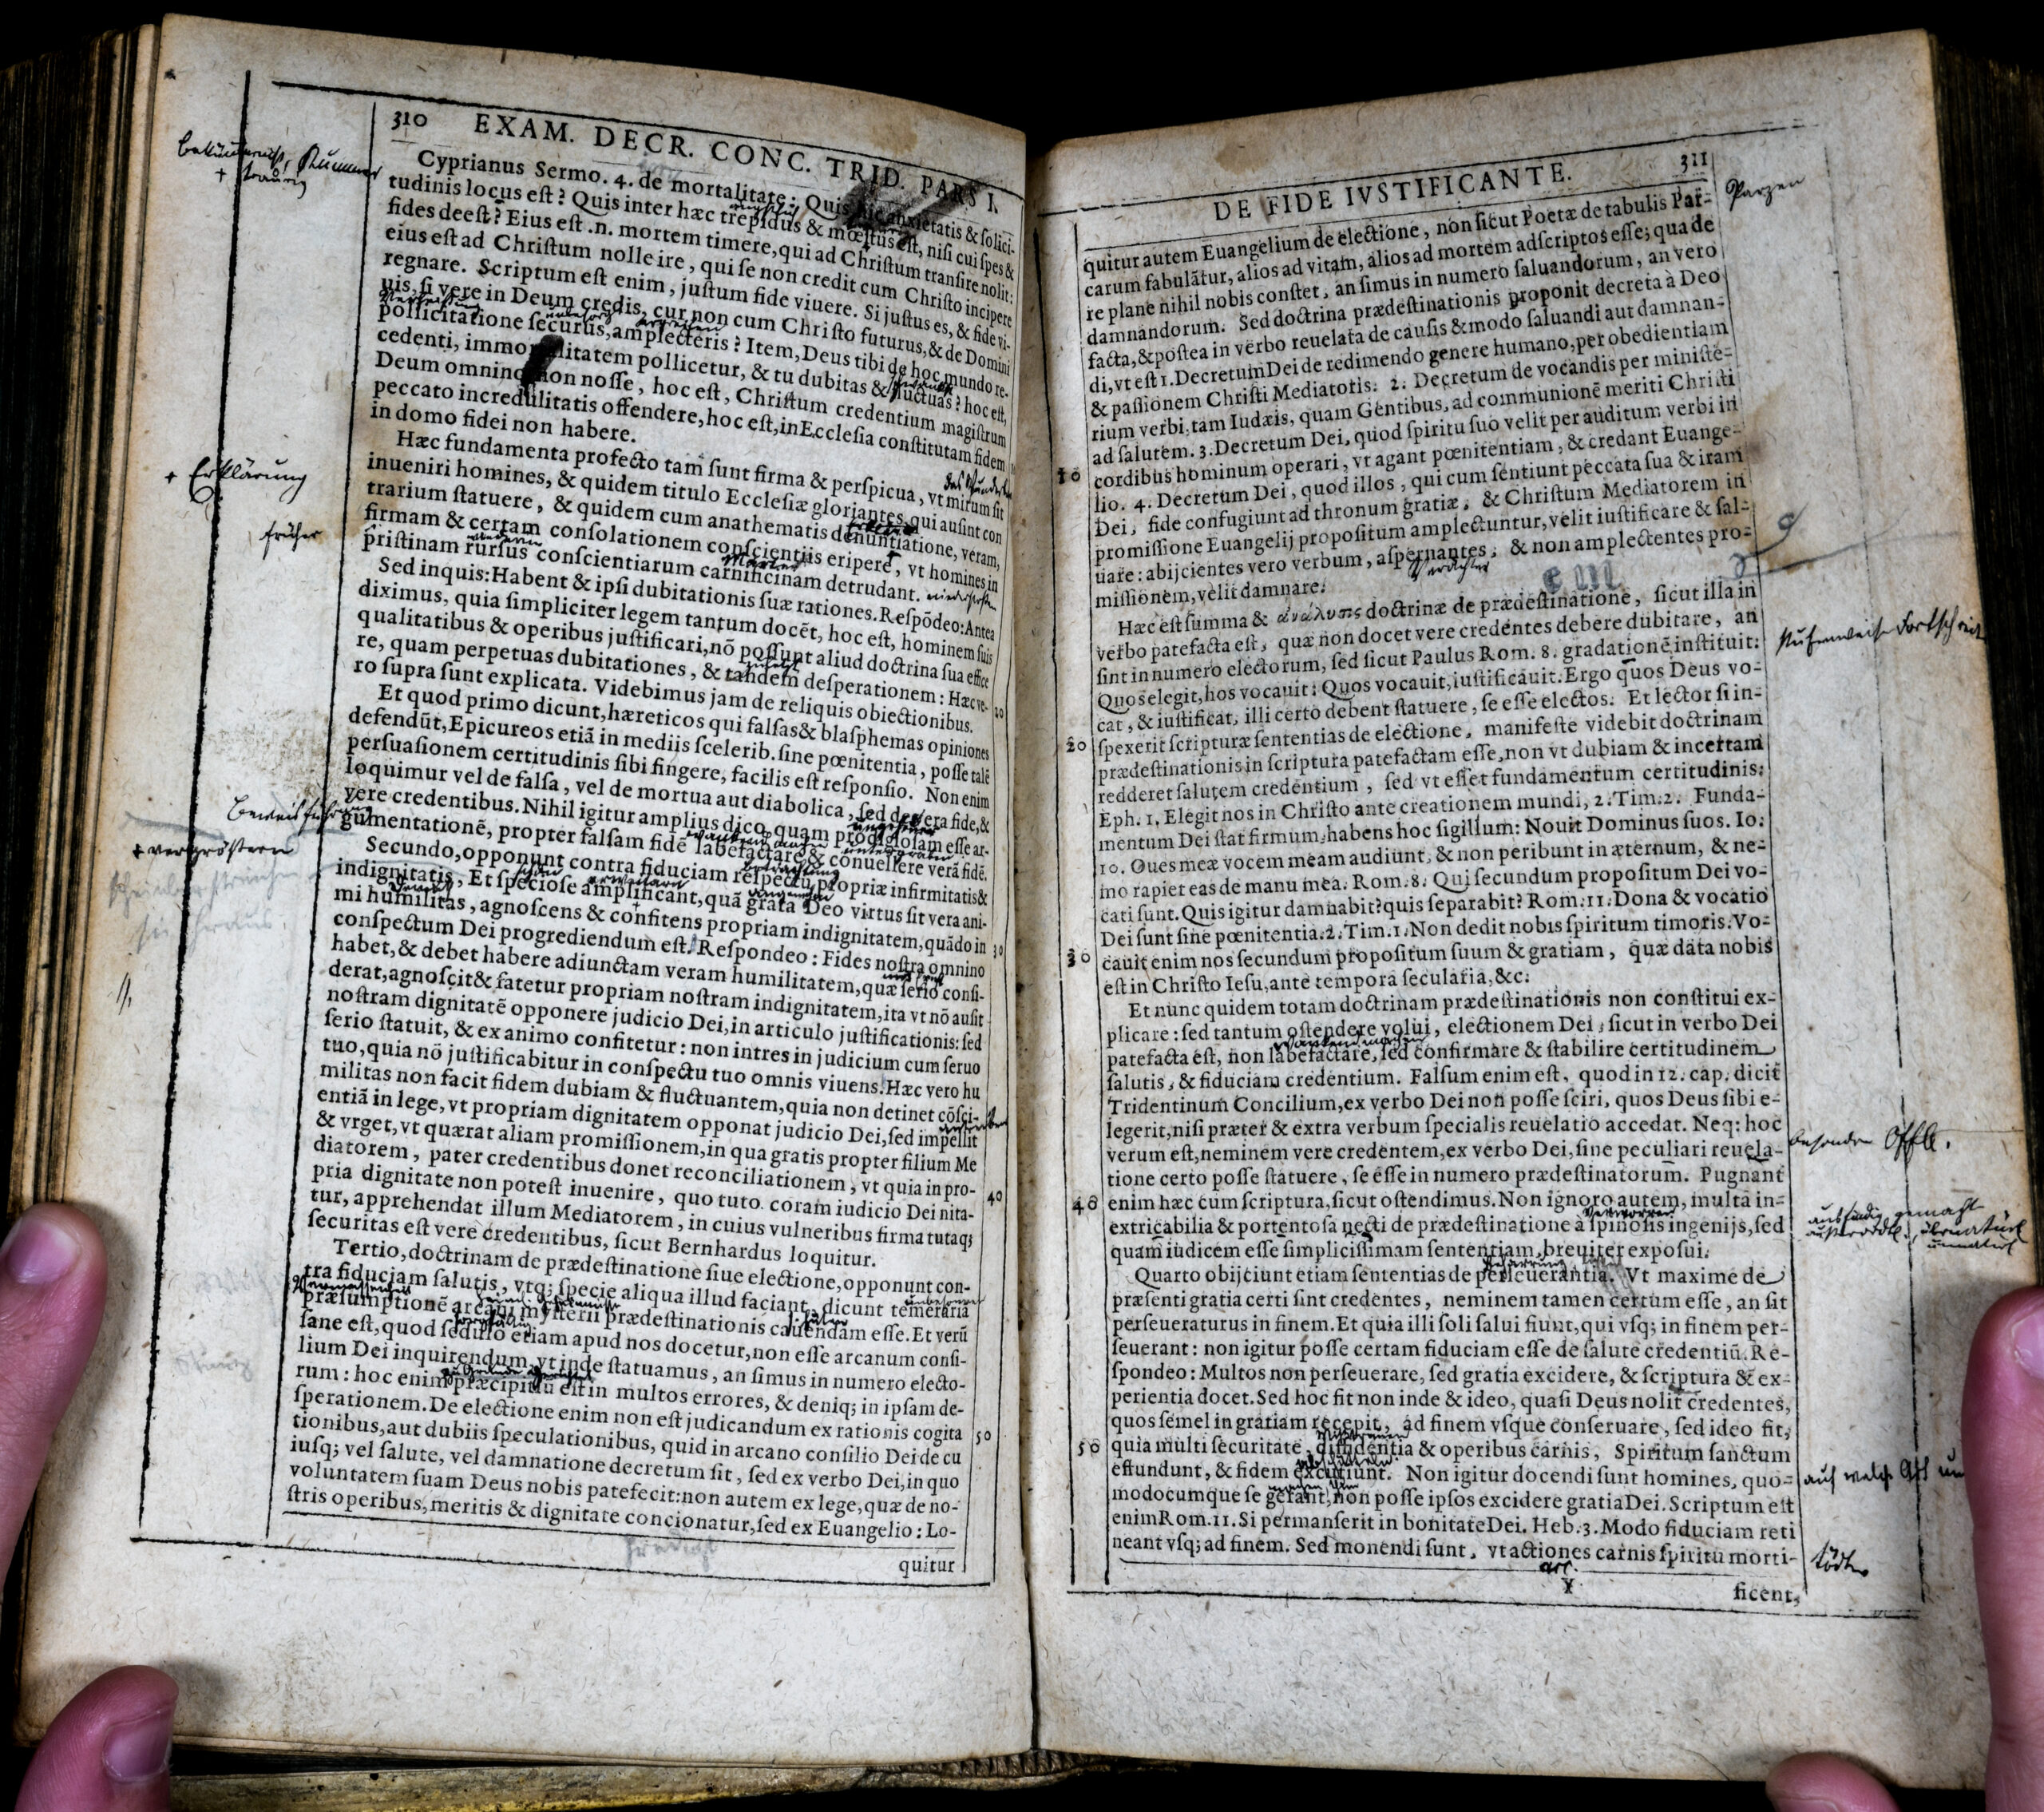 310 EXAM. DECR. CONC. TRID. PARS I.
Cyprianus Sermo. 4. de mortalitate: Quis hic anxietatis & ſolici-
tudinis locus eſt? Quis inter hæc trepidus & mœſtus eſt, niſi cui ſpes &
fides deeſt? Eius eſt .n. mortem timere, qui ad Chriſtum tranſire nolit:
eius eſt ad Chriſtum nolle ire, qui ſe non credit cum Chriſto incipere
regnare. Scriptum eſt enim, juſtum fide viuere. Si juſtus es, & fide vi-
uis, ſi vere in Deum credis, cur non cum Chriſto futurus, & de Domini
pollicitatione ſecurus, amplecteris? Item, Deus tibi de hoc mundo re-
cedenti, immortalitatem pollicetur, & tu dubitas & fluctuas? hoc eſt,
Deum omnino non noſſe, hoc eſt, Chriſtum credentium magiſtrum
peccato incredulitatis offendere, hoc eſt, in Eccleſia conſtitutam fidem
in domo fidei non habere.
Hæc fundamenta profecto tam ſunt firma & perſpicua, vt mirum ſit
inueniri homines, & quidem titulo Eccleſiæ gloriantes, qui auſint con
trarium ſtatuere, & quidem cum anathematis denuntiatione, veram,
firmam & certam conſolationem conſcientiis eripere, vt homines in
priſtinam rurſus conſcientiarum carnificinam detrudant.
Sed inquis: Habent & ipſi dubitationis ſuæ rationes. Reſpōdeo: Antea
diximus, quia ſimpliciter legem tantum docēt, hoc eſt, hominem ſuis
qualitatibus & operibus juſtificari, nō poſſunt aliud doctrina ſua effice
re, quam perpetuas dubitationes, & tandem deſperationem: Hæc ve-
ro ſupra ſunt explicata. Videbimus jam de reliquis obiectionibus.
Et quod primo dicunt, hæreticos qui falſas & blaſphemas opiniones
defendūt, Epicureos etiā in mediis ſcelerib. ſine pœnitentia, poſſe talē
perſuaſionem certitudinis ſibi fingere, facilis eſt reſponſio. Non enim
loquimur vel de falſa, vel de mortua aut diabolica, ſed de vera fide, &
vere credentibus. Nihil igitur amplius dico, quam prodigioſam eſſe ar-
gumentationē, propter falſam fidē labefactare & cōnuellere verā fidē.
Secundo, opponunt contra fiduciam reſpectū propriæ infirmitatis &
indignitatis, Et ſpecioſe amplificant, quā grata Deo virtus ſit vera ani-
mi humilitas, agnoſcens & confitens propriam indignitatem, quādo in
conſpectum Dei progrediendum eſt. Reſpondeo: Fides noſtra omnino
habet, & debet habere adiunctam veram humilitatem, quæ ſerio conſi-
derat, agnoſcit & fatetur propriam noſtram indignitatem, ita vt nō auſit
noſtram dignitatē opponere judicio Dei, in articulo juſtificationis: ſed
ſerio ſtatuit, & ex animo confitetur: non intres in judicium cum ſeruo
tuo, quia nō juſtificabitur in conſpectu tuo omnis viuens. Hæc vero hu
militas non facit fidem dubiam & fluctuantem, quia non detinet cōſci-
entiā in lege, vt propriam dignitatem opponat judicio Dei, ſed impellit
& vrget, vt quærat aliam promiſſionem, in qua gratis propter filium Me
diatorem, pater credentibus donet reconciliationem, vt quia in pro-
pria dignitate non poteſt inuenire, quo tuto coram iudicio Dei nita-
tur, apprehendat illum Mediatorem, in cuius vulneribus firma tutaq;
ſecuritas eſt vere credentibus, ſicut Bernhardus loquitur.
Tertio, doctrinam de prædeſtinatione ſiue electione, opponunt con-
tra fiduciam ſalutis, vtq; ſpecie aliqua illud faciant, dicunt temeraria
præſumptionē arcani myſterii prædeſtinationis cauendam eſſe. Et verū
ſane eſt, quod ſedulo etiam apud nos docetur, non eſſe arcanum conſi-
lium Dei inquirendum, vt inde ſtatuamus, an ſimus in numero electo-
rum: hoc enim præcipitiū eſt in multos errores, & deniq; in ipſam de-
ſperationem. De electione enim non eſt judicandum ex rationis cogita
tionibus, aut dubiis ſpeculationibus, quid in arcano conſilio Dei de cu
iuſq; vel ſalute, vel damnatione decretum ſit, ſed ex verbo Dei, in quo
voluntatem ſuam Deus nobis patefecit: non autem ex lege, quæ de no-
ſtris operibus, meritis & dignitate concionatur, ſed ex Euangelio: Lo-
quitur
20
30
40
50
Kummer
+ traurig
+ Erklärung
früher
+ vergröſtern
DE FIDE IVSTIFICANTE. 311
quitur autem Euangelium de electione, non ſicut Poetæ de tabulis Par-
carum fabulātur, alios ad vitam, alios ad mortem adſcriptos eſſe; qua de
re plane nihil nobis conſtet, an ſimus in numero ſaluandorum, an vero
damnandorum. Sed doctrina prædeſtinationis proponit decreta à Deo
facta, & poſtea in verbo reuelata de cauſis & modo ſaluandi aut damnan-
di, vt eſt 1. Decretum Dei de redimendo genere humano, per obedientiam
& paſſionem Chriſti Mediatoris. 2. Decretum de vocandis per miniſte-
rium verbi, tam Iudæis, quam Gentibus, ad communionē meriti Chriſti
ad ſalutem. 3. Decretum Dei, quod ſpiritu ſuo velit per auditum verbi in
cordibus hominum operari, vt agant pœnitentiam, & credant Euange-
lio. 4. Decretum Dei, quod illos, qui cum ſentiunt peccata ſua & iram
Dei, fide confugiunt ad thronum gratiæ, & Chriſtum Mediatorem in
promiſſione Euangelij propoſitum amplectuntur, velit iuſtificare & ſal-
uare: abijcientes vero verbum, aſpernantes, & non amplectentes pro-
miſſionem, velit damnare.
Hæc eſt ſumma & ἀνάλυσις doctrinæ de prædeſtinatione, ſicut illa in
verbo patefacta eſt, quæ non docet vere credentes debere dubitare, an
ſint in numero electorum, ſed ſicut Paulus Rom. 8. gradationē inſtituit:
Quos elegit, hos vocauit: Quos vocauit, iuſtificauit. Ergo quos Deus vo-
cat, & iuſtificat, illi certo debent ſtatuere, ſe eſſe electos. Et lector ſi in-
ſpexerit ſcripturæ ſententias de electione, manifeſte videbit doctrinam
prædeſtinationis in ſcriptura patefactam eſſe, non vt dubiam & incertam
redderet ſalutem credentium, ſed vt eſſet fundamentum certitudinis:
Eph. 1. Elegit nos in Chriſto ante creationem mundi, 2. Tim. 2. Funda-
mentum Dei ſtat firmum, habens hoc ſigillum: Nouit Dominus ſuos. Io:
10. Oues meæ vocem meam audiunt, & non peribunt in æternum, & ne-
mo rapiet eas de manu mea. Rom. 8. Qui ſecundum propoſitum Dei vo-
cati ſunt. Quis igitur damnabit? quis ſeparabit? Rom. 11. Dona & vocatio
Dei ſunt ſine pœnitentia. 2. Tim. 1. Non dedit nobis ſpiritum timoris. Vo-
cauit enim nos ſecundum propoſitum ſuum & gratiam, quæ data nobis
eſt in Chriſto Ieſu, ante tempora ſecularia, &c.
Et nunc quidem totam doctrinam prædeſtinationis non conſtitui ex-
plicare: ſed tantum oſtendere volui, electionem Dei, ſicut in verbo Dei
patefacta eſt, non labefactare, ſed confirmare & ſtabilire certitudinem
ſalutis, & fiduciam credentium. Falſum enim eſt, quod in 12. cap. dicit
Tridentinum Concilium, ex verbo Dei non poſſe ſciri, quos Deus ſibi e-
legerit, niſi præter & extra verbum ſpecialis reuelatio accedat. Neq: hoc
verum eſt, neminem vere credentem, ex verbo Dei, ſine peculiari reuela-
tione certo poſſe ſtatuere, ſe eſſe in numero prædeſtinatorum. Pugnant
enim hæc cum ſcriptura, ſicut oſtendimus. Non ignoro autem, multa in-
extricabilia & portentoſa necti de prædeſtinatione à ſpinoſis ingenijs, ſed
quam iudicem eſſe ſimpliciſſimam ſententiam, breuiter expoſui.
Quarto obijciunt etiam ſententias de perſeuerantia. Vt maxime de
præſenti gratia certi ſint credentes, neminem tamen certum eſſe, an ſit
perſeueraturus in finem. Et quia illi ſoli ſalui fiunt, qui vſq; in finem per-
ſeuerant: non igitur poſſe certam fiduciam eſſe de ſalute credentiū. Re-
ſpondeo: Multos non perſeuerare, ſed gratia excidere, & ſcriptura & ex-
perientia docet. Sed hoc fit non inde & ideo, quaſi Deus nolit credentes,
quos ſemel in gratiam recepit, ad finem vſque conſeruare, ſed ideo fit,
quia multi ſecuritate, diffidentia & operibus carnis, Spiritum ſanctum
effundunt, & fidem excutiunt. Non igitur docendi ſunt homines, quo-
modocumque ſe gerant, non poſſe ipſos excidere gratia Dei. Scriptum eſt
enim Rom. 11. Si permanſerit in bonitate Dei. Heb. 3. Modo fiduciam reti
neant vſq; ad finem. Sed monendi ſunt, vt actiones carnis ſpiritu morti-
ficent,
10
20
30
40
50
Parzen